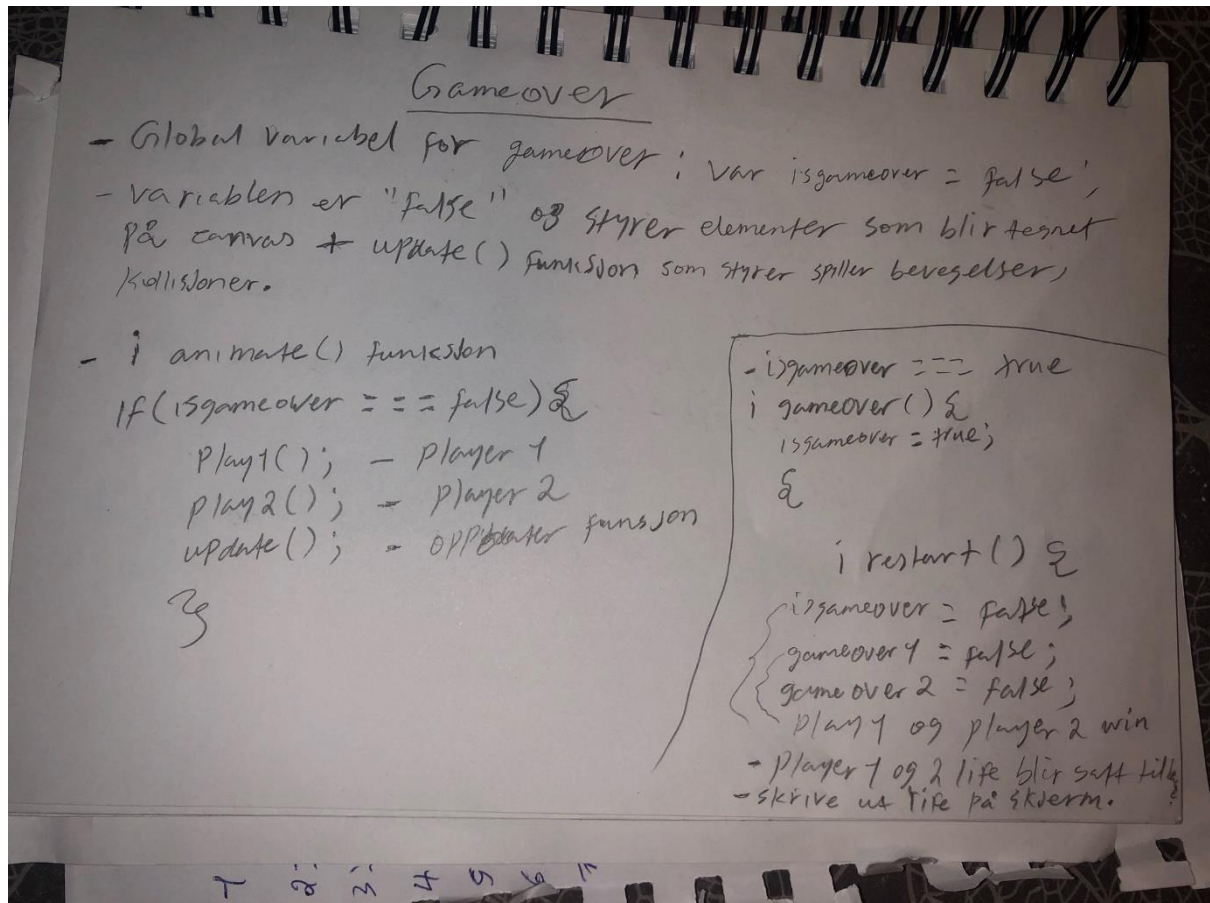 Gameover
- Global variabel for gameover : var isgameover = false;
- variablen er "false" og styrer elementer som blir tegnet
på canvas + update() funksjon som styrer spiller bevegelser,
kollisjoner.
- i animate() funksjon
If(isgameower === false){
Play1(); - Player 1
play2(); - Player 2
update(); - oppdater funsjon
}
- isgameover === true
i gameover(){
isgameover = true;
{
i restart() {
isgameover = false;
gameover1 = false;
gameover2 = false;
play1 og player 2 win
- Player 1 og 2 life blir satt
- skrive ut life på skjerm.
1 2: 3: 4 5 6